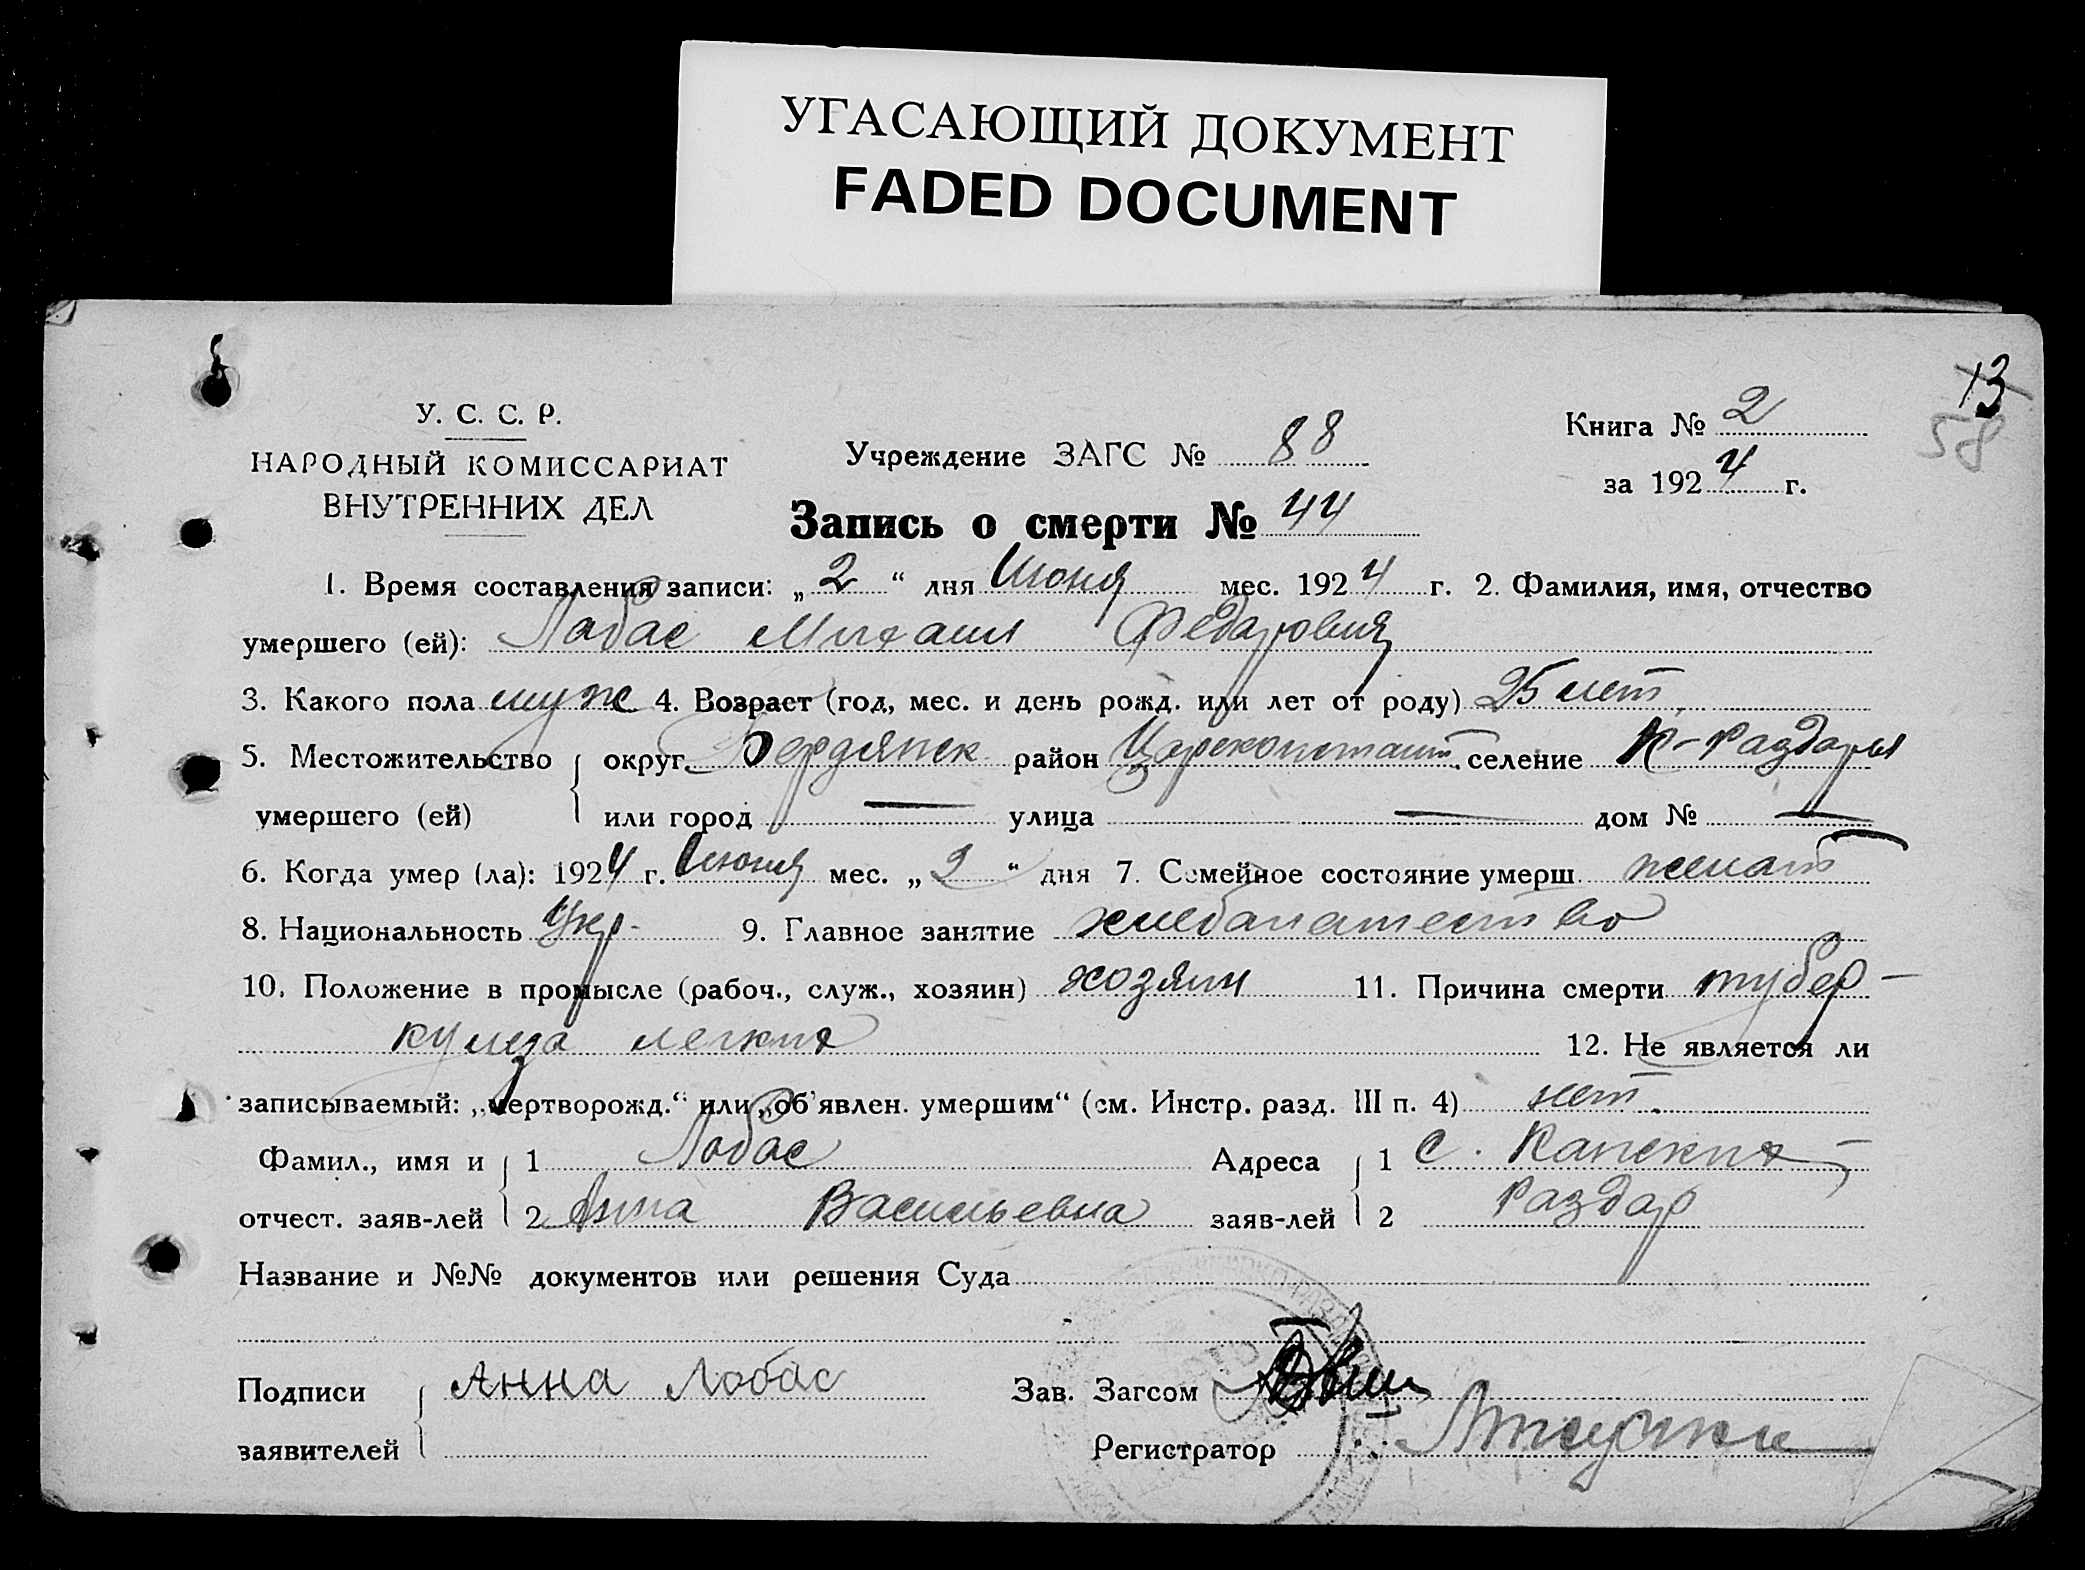 УГАСАЮЩИЙ ДОКУМЕНТ
FADED DOCUMENT
13
58
У. С. С. Р.
НАРОДНЫЙ КОМИССАРИАТ
ВНУТРЕННИХ ДЕЛ
Учреждение ЗАГС № 88
Книга № 2
за 1924 г.
Запись о смерти № 44
1. Время составления записи: „2“ дня Июня мес. 1924 г. 2. Фамилия, имя, отчество
умершего (ей): Лобас Михаил Федорович
3. Какого пола муж 4. Возраст (год, мес. и день рожд. или лет от роду) 25 лет.
5. Местожительство округ. Бердянск район Цареконстант. селение К-Раздоры
умершего (ей) или город — улица — дом № —
6. Когда умер (ла): 1924 г. Июня мес. „2“ дня 7. Семейное состояние умерш. женат
8. Национальность Укр- 9. Главное занятие хлебопашество
10. Положение в промысле (рабоч., служ., хозяин) хозяин 11. Причина смерти тубер-
кулеза легких 12. Не является ли
записываемый: „мертворожд.“ или „об'явлен. умершим“ (см. Инстр. разд. III п. 4) нет.
Фамил., имя и 1 Лобас Адреса 1 с. Канских-
отчест. заяв-лей 2 Анна Васильевна заяв-лей 2 Раздор
Название и №№ документов или решения Суда
Подписи Анна Лобас Зав. Загсом
заявителей Регистратор